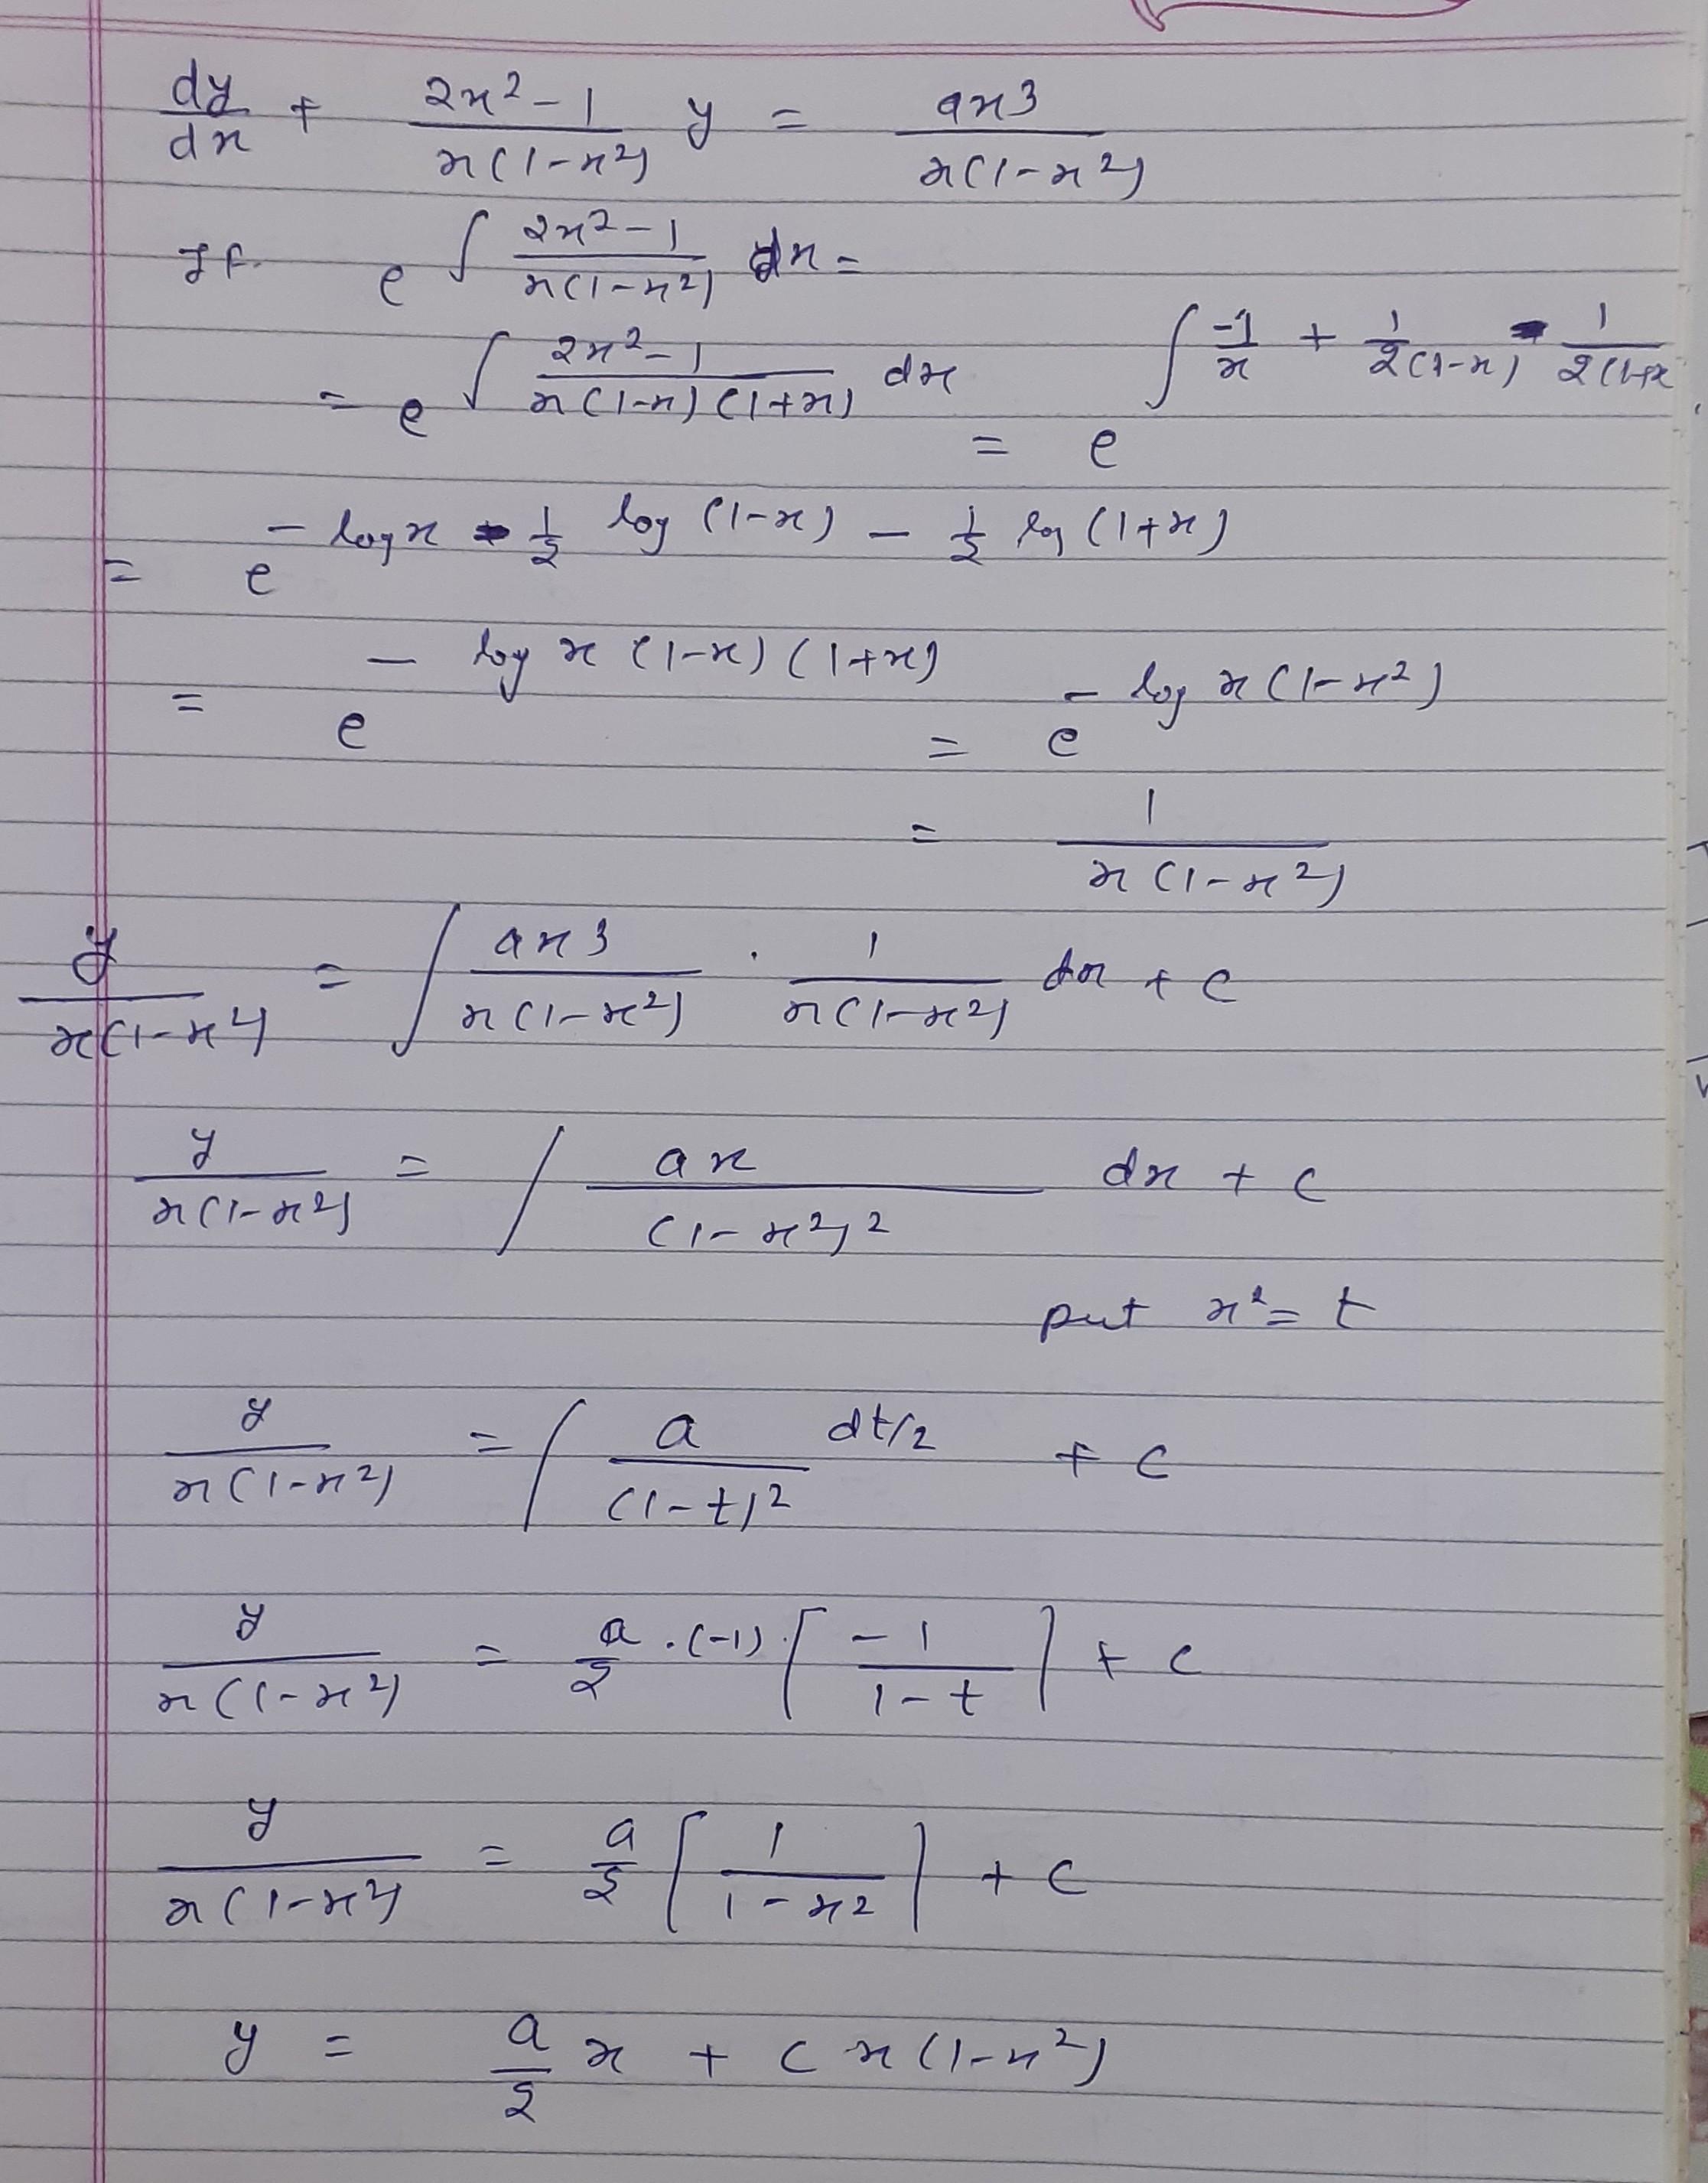 dy/dx + (2x² - 1)/(x(1-x²)) y = ax3/(x(1-x²))
If. e^∫ (2x² - 1)/(x(1-x²)) dx =
= e^∫ (2x² - 1)/(x(1-x)(1+x)) dx = e^∫ -1/x + 1/2(1-x) - 1/2(1+x
= e^- log x - 1/2 log (1-x) - 1/2 log (1+x)
= e^- log x (1-x) (1+x) = e^- log x (1-x²)
= 1/(x(1-x²))
y/(x(1-x²)) = ∫ ax3/(x(1-x²)) . 1/(x(1-x²)) dx + c
y/(x(1-x²)) = ∫ ax/(1-x²)² dx + c
put x² = t
y/(x(1-x²)) = ∫ a/(1-t)² dt/2 + c
y/(x(1-x²)) = a/2 . (-1) . [-1/(1-t)] + c
y/(x(1-x²)) = a/2 [1/(1-x2)] + c
y = a/2 x + c x (1-x²)